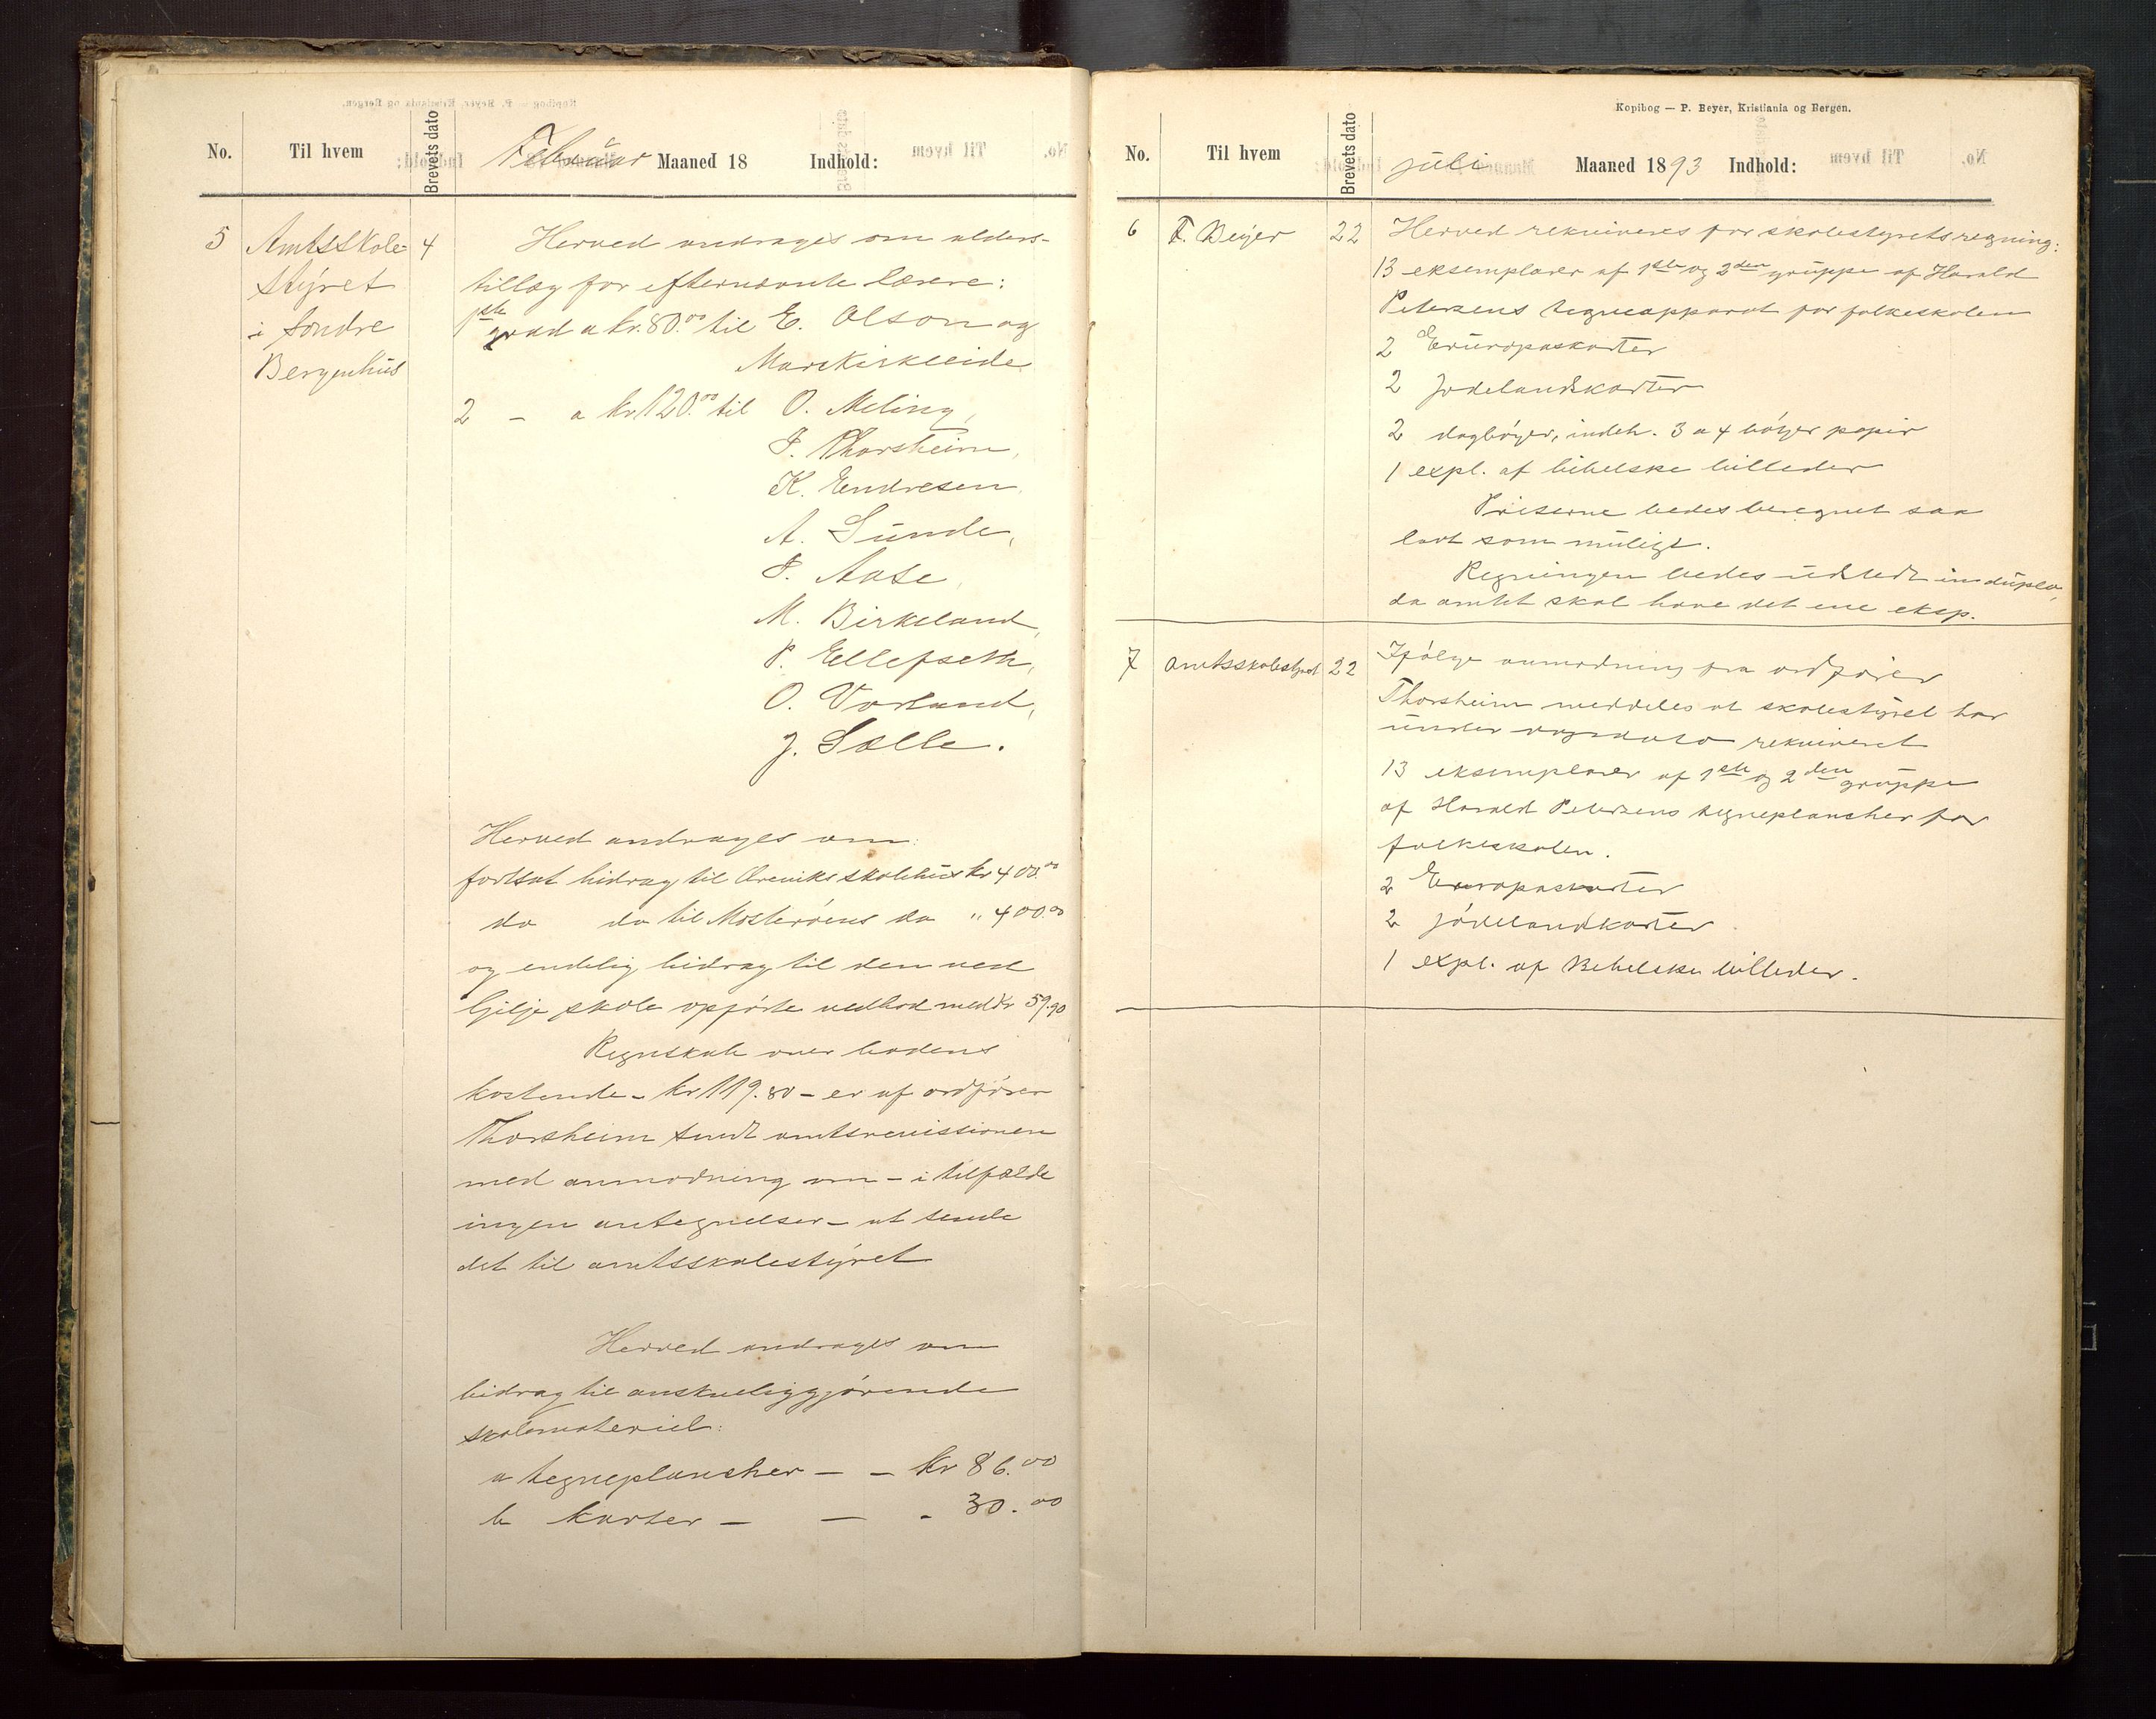 No.
Til hvem
Brevets dato
Februar Maaned 18 Indhold:
5
Amtsskole-
styret
i Søndre
Bergenhus
4
Herved andrages om alders-
tillæg for efternævnte lærere:
1ste grad a kr. 80.00 til E. Olson og
Mons Kirkleide
2 - a kr 120.00 til O. Meling,
T. Thorsheim,
K. Endresen,
A. Sunde,
T. Aase,
M. Birkeland,
P. Ellefseth,
O. Vorland,
J. Sælle.
Herved andrages om:
fortsat bidrag til skolehus kr 400.00
do do til Mosterøens do " 400.00
og endelig bidrag til den ved
Gilje skole opførte vedbod med kr 59.90
Regnskab over bodens
kostende - kr 119.80 - er af ordfører
Thorsheim sendt amtsrevissionen
med anmodning om - i tilfælde
ingen antegnelser - at sende
det til amtsskolestyret
Herved andrages om
bidrag til anskueliggjørende
skolemateriel:
a tegneplancher - - kr 86.00
b karter - - - 30.00
Kopibog — P. Beyer, Kristiania og Bergen.
No.
Til hvem
Brevets dato
juli Maaned 1893 Indhold:
6
F. Beyer
22
Herved rekvireres for skolestyrets regning:
13 eksemplarer af 1ste og 2den gruppe af Harald
Petersens tegneapparat for folkeskolen
2 Europaskarter
2 Jødelandskarter
2 dagbøger, indeh. 3 a 4 bøger papir
1 expl. af bibelske billeder
Priserne bedes beregnet saa
lavt som muligt.
Regningen bedes udstedt in duplo,
da amtet skal have det ene eksp.
7
Amtsskolestyret
22
Ifølge anmodning fra ordfører
Thorsheim meddeles at skolestyret har
under dagsdato rekvireret
13 eksemplarer af 1ste og 2den gruppe
af Harald Petersens tegneplancher for
folkeskolen.
2 Europaskarter
2 jødelandkarter
1 expl. af Bibelske billeder.